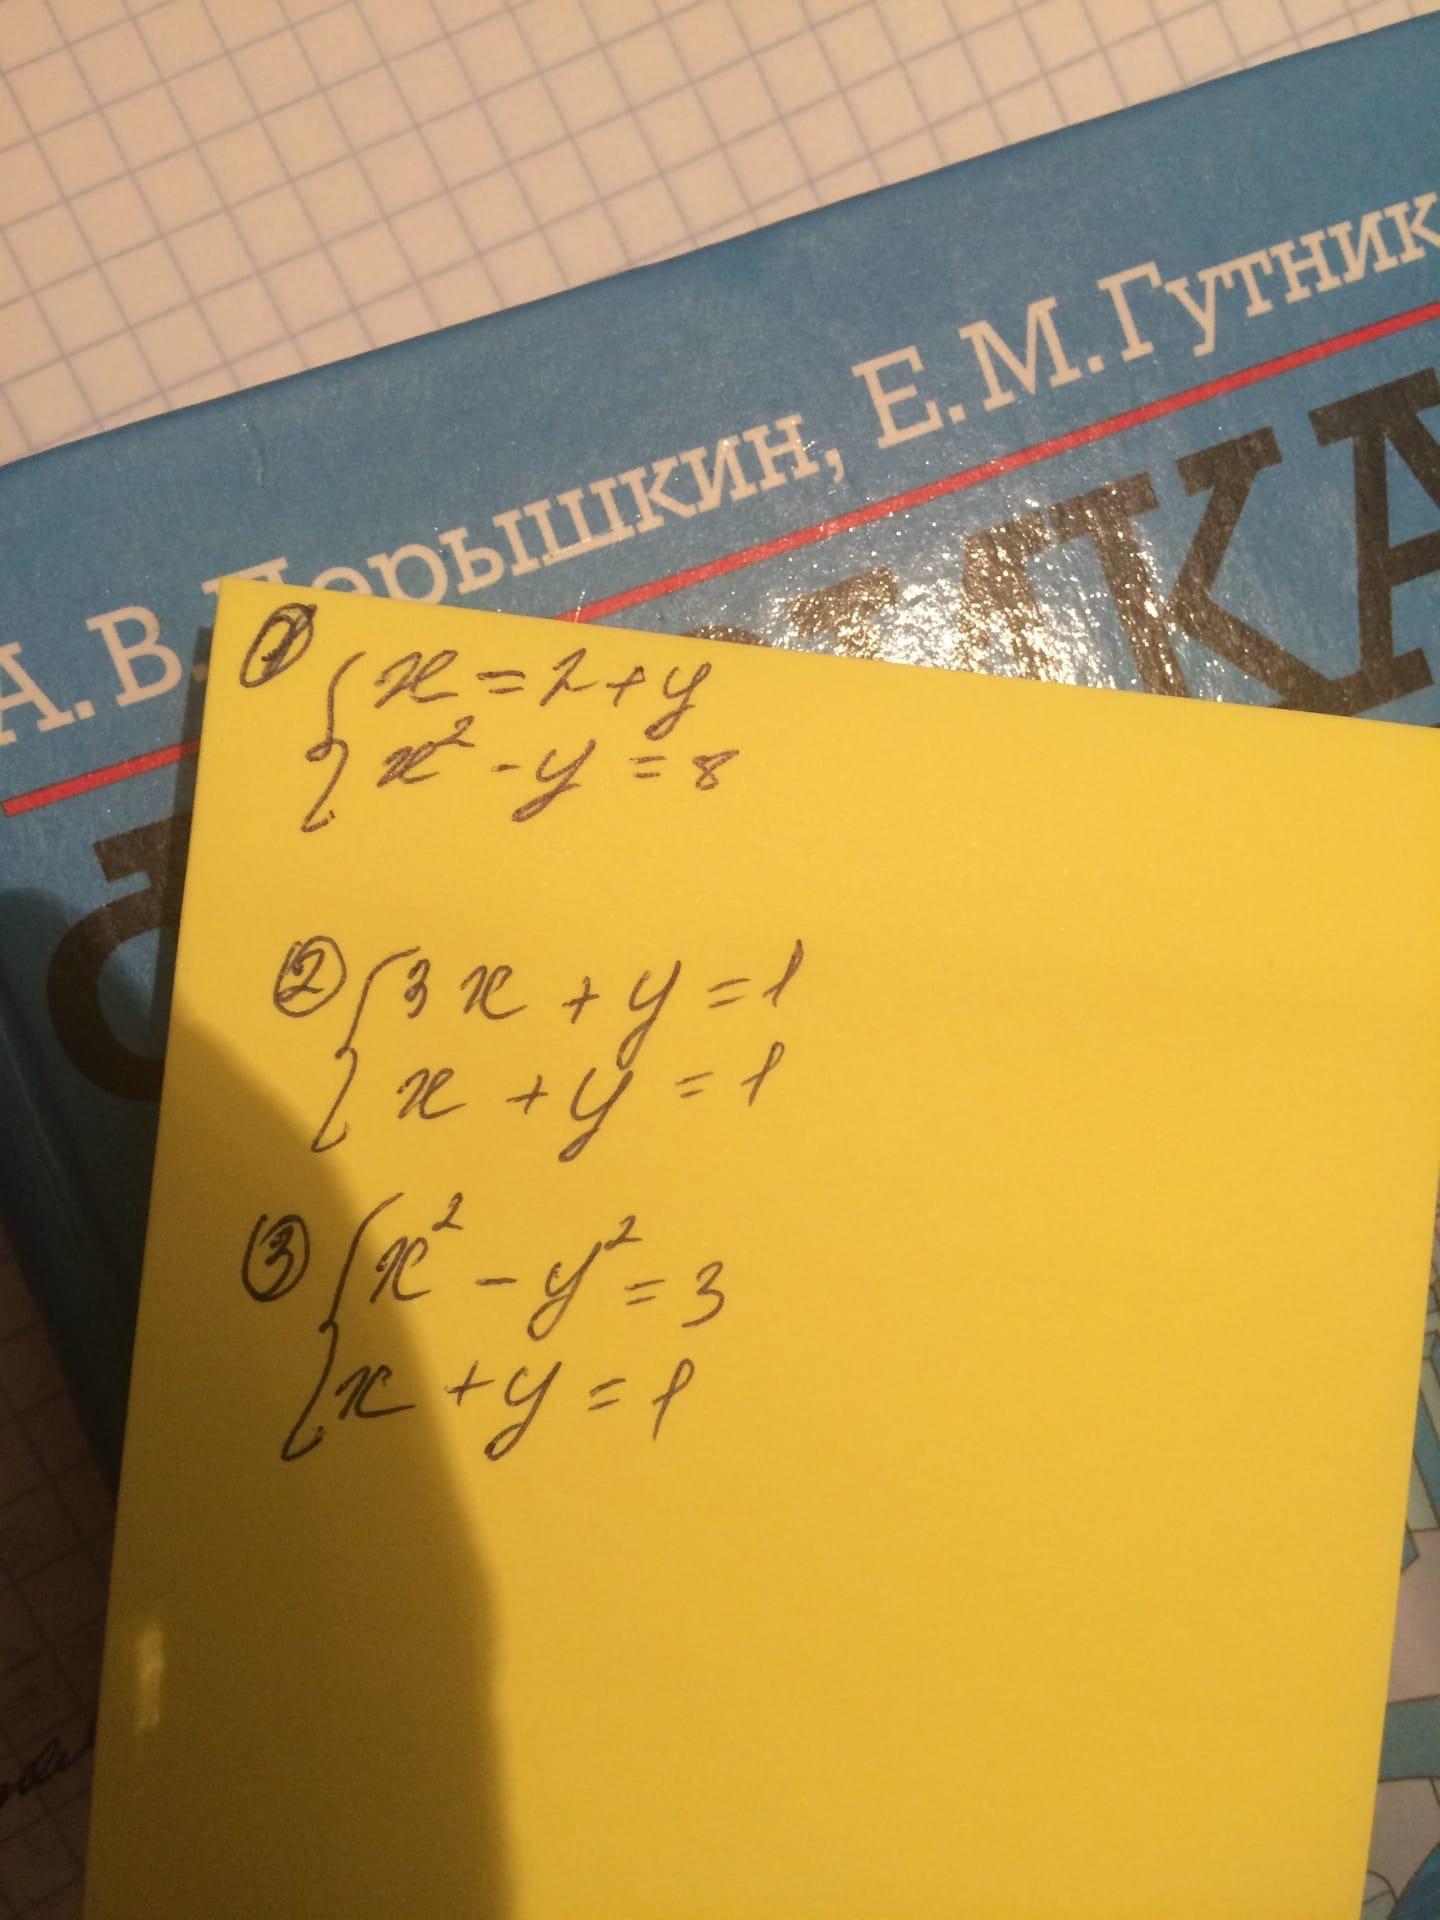 А. В. Перышкин, Е. М. Гутник
ФИЗИКА
① { x = 2 + y
x² - y = 8
② { 3x + y = 1
x + y = 1
③ { x² - y² = 3
x + y = 1